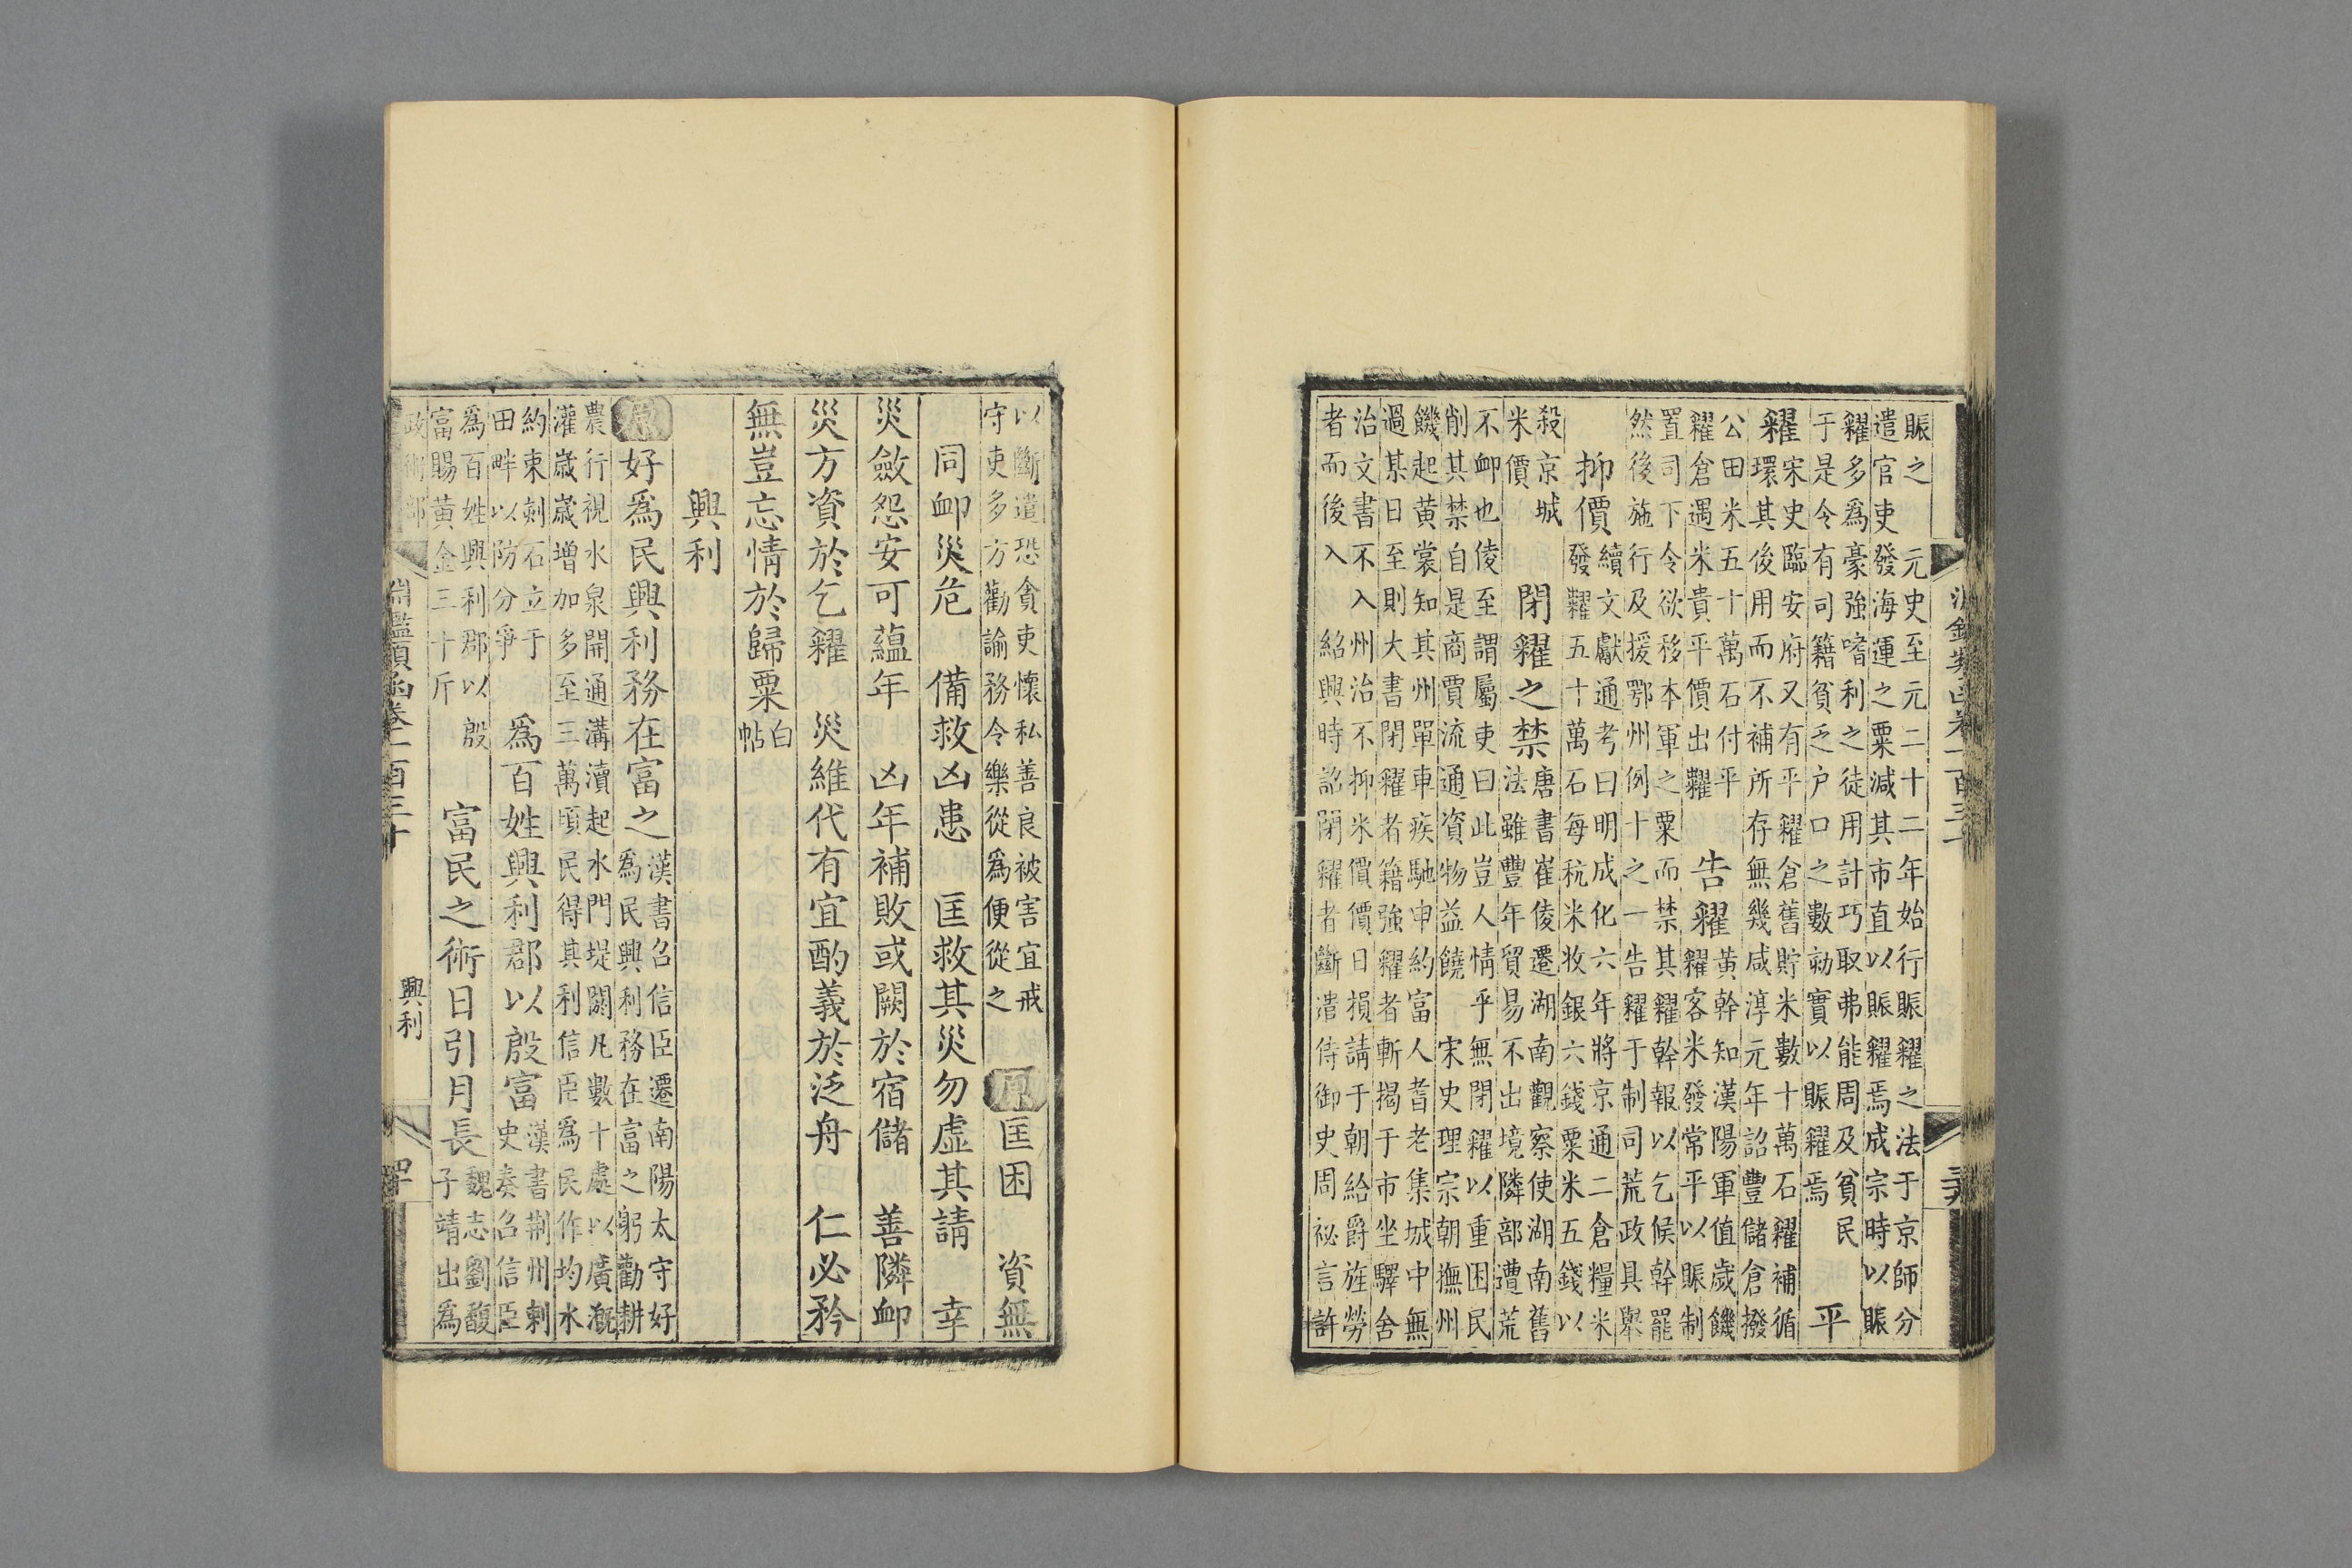 賑之 元史至元二十二年始行賑糶之法于京師分
遣官吏發海運之粟減其市直以賑糶焉成宗時以賑
糶多爲豪強嗜利之徒用計巧取弗能周及貧民
于是令有司籍貧乏户口之數劾實以賑糶焉 平
糴 宋史臨安府又有平糴倉舊貯米數十萬石糴補循
環其後用而不補所存無幾咸淳元年詔豐儲倉撥
公田米五十萬石付平
糴倉遇米貴平價出糶
告糴 黄幹知漢陽軍值歲饑
糴客米發常平以賑制
置司下令欲移本軍之粟而禁其糴幹報以乞候幹罷
然後施行及援鄂州例十之一告糴于制司荒政具舉
抑價 續文獻通考曰明成化六年將京通二倉糧米
發糶五十萬石每秔米收銀六錢粟米五錢以
殺京城
米價
閉糴之禁 唐書崔倰遷湖南觀察使湖南舊
法雖豐年貿易不出境隣部遭荒
不䘏也倰至謂屬吏曰此豈人情乎無閉糴以重困民
削其禁自是商賈流通資物益饒 宋史理宗朝撫州
饑起黄裳知其州單車疾馳申約富人耆老集城中無
過某日至則大書閉糴者籍強糴者斬揭于市坐驛舍
治文書不入州治不抑米價價日損請于朝給爵旌勞
者而後入 紹興時詔閉糴者斷遣侍御史周祕言許
以斷遣恐貪吏懷私善良被害宜戒
守吏多方勸諭務令樂從爲便從之
原 匡困 資無
同䘏災危 備救凶患 匡救其災勿虛其請 幸
災斂怨安可蘊年 凶年補敗或闕於宿儲 善隣䘏
災方資於乞糴 災維代有宜酌義於泛舟 仁必矜
無豈忘情於歸粟 白帖
興利
原 好爲民興利務在富之 漢書召信臣遷南陽太守好
爲民興利務在富之躬勸耕
農行視水泉開通溝瀆起水門堤閼凡數十處以廣溉
灌歲歲增加多至三萬頃民得其利信臣爲民作均水
約束刻石立于
田畔以防分爭
爲百姓興利郡以殷富 漢書荆州刺
史奏召信臣
爲百姓興利郡以殷
富賜黄金三十斤
富民之術日引月長 魏志劉馥
子靖出爲
政術部
淵鑑類函卷一百三十
興利